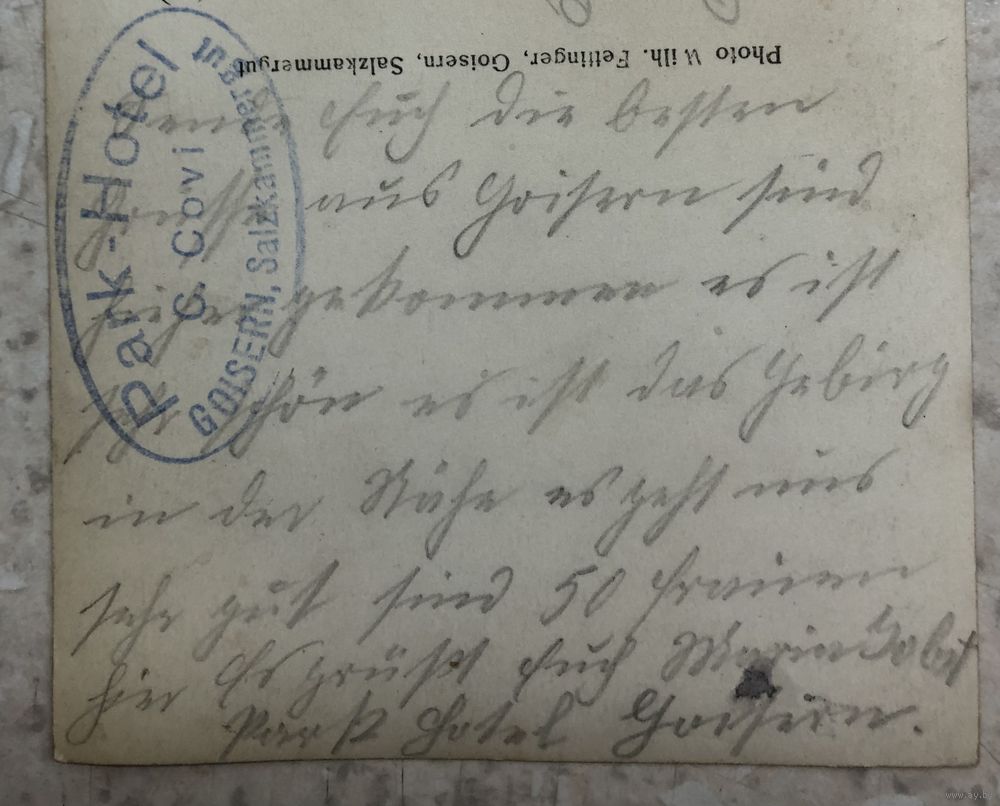 Photo Wilh. Fettinger, Goisern, Salzkammergut
Park-Hotel
C. Covi
GOISERN, Salzkammergut
Euch die besten
aus Goisern sind
gekommen es ist
schön es ist das Gebirg
in der Nähe es geht uns
sehr gut sind 50 Frauen
hier Es grüßt Euch Maria
Park Hotel Goisern.
www.ay.by